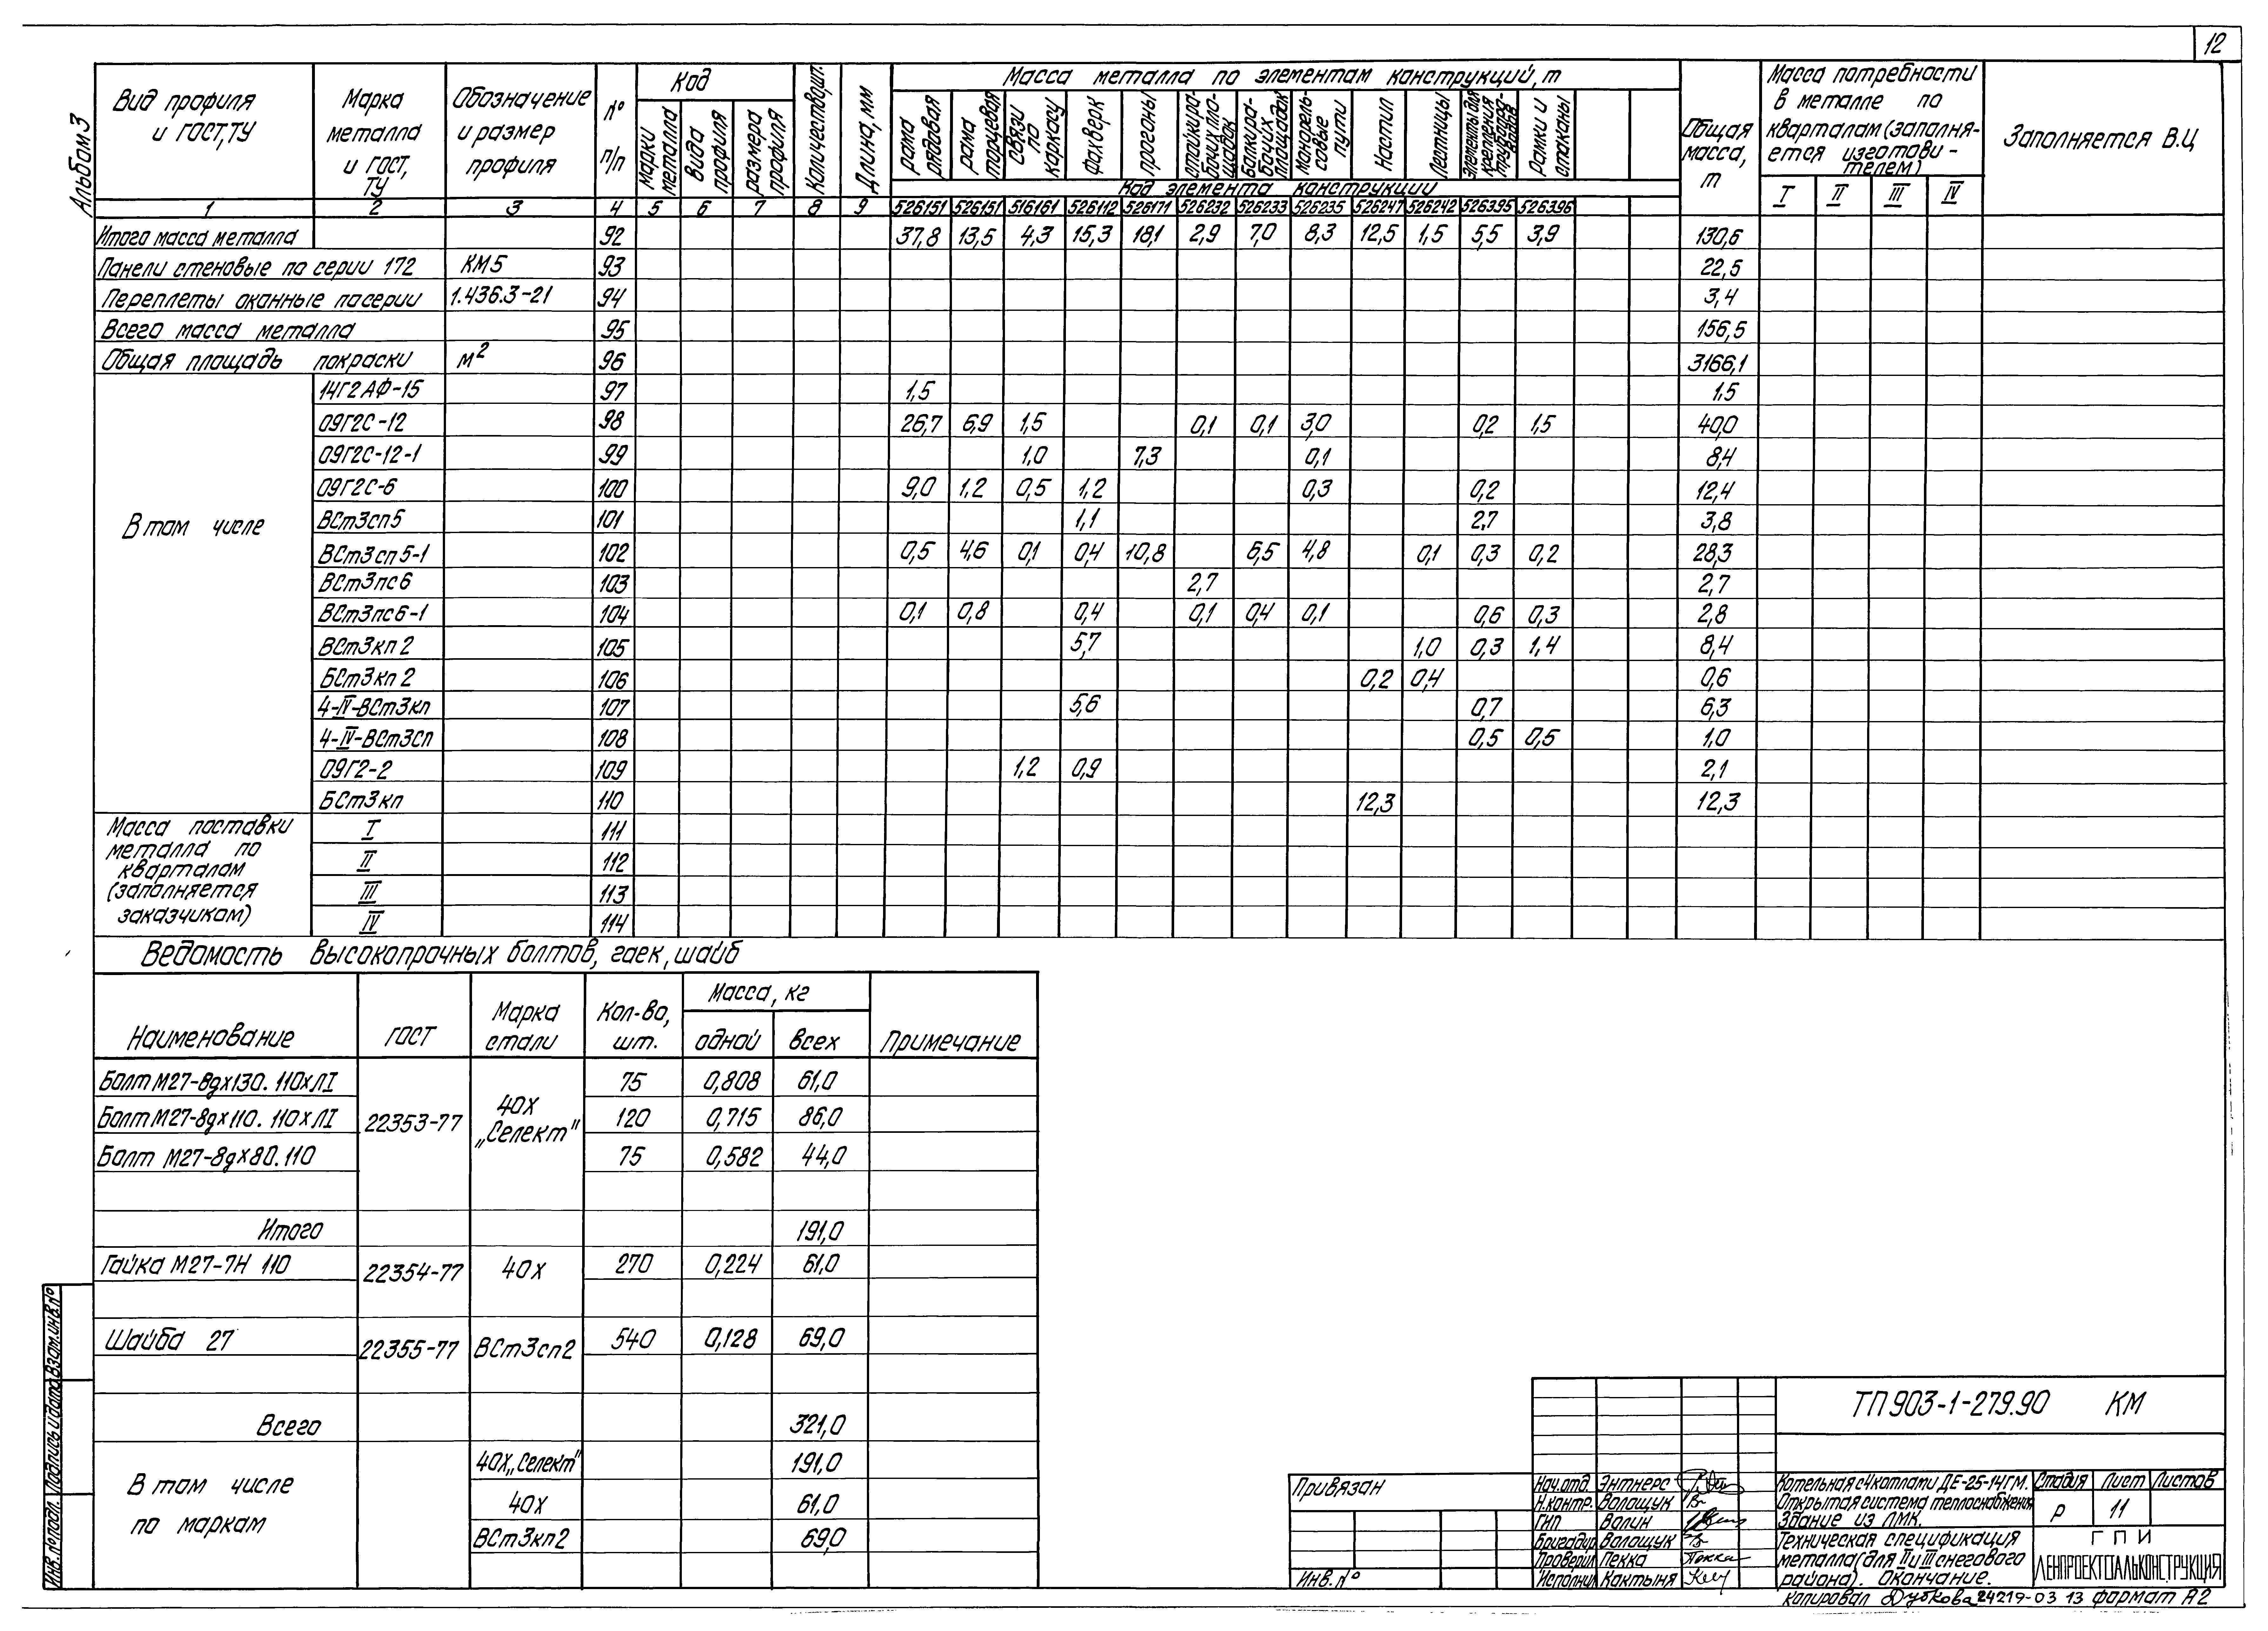 12
Альбом 3
Вид профиля и ГОСТ, ТУ
Марка металла и ГОСТ, ТУ
Обозначение и размер профиля
№ п/п
Код
Марки металла
Вида профиля
размера профиля
Количество шт.
Длина, мм
Масса металла по элементам конструкций, т
рама рядовая
рама торцевая
связи по каркасу
Фахверк
прогоны
монорельсовые пути
Настил
Лестницы
Рамки и стаканы
Код элемента конструкции
Общая масса, т
Масса потребности в металле по кварталам (заполняется изготовителем)
I II III IV
Заполняется В.Ц
1 2 3 4 5 6 7 8 9 526151 526151 516161 526112 526171 526232 526233 526235 526247 526242 526395 526396
Итого масса металла 92 37,8 13,5 4,3 15,3 18,1 2,9 7,0 8,3 12,5 1,5 5,5 3,9 130,6
Панели стеновые по серии 172 КМ5 93 22,5
Переплеты оконные по серии 1.436.3-21 94 3,4
Всего масса металла 95 156,5
Общая площадь покраски м² 96 3166,1
В том числе
14Г2АФ-15 97 1,5 1,5
09Г2С-12 98 26,7 6,9 1,5 0,1 0,1 3,0 0,2 1,5 40,0
09Г2С-12-1 99 1,0 7,3 0,1 8,4
09Г2С-6 100 9,0 1,2 0,5 1,2 0,3 0,2 12,4
ВСт3сп5 101 1,1 2,7 3,8
ВСт3сп5-1 102 0,5 4,6 0,1 0,4 10,8 6,5 4,8 0,1 0,3 0,2 28,3
ВСт3пс6 103 2,7 2,7
ВСт3пс6-1 104 0,1 0,8 0,4 0,1 0,4 0,1 0,6 0,3 2,8
ВСт3кп2 105 5,7 1,0 0,3 1,4 8,4
БСт3кп2 106 0,2 0,4 0,6
4-IV-ВСт3кп 107 5,6 0,7 6,3
4-IV-ВСт3сп 108 0,5 0,5 1,0
09Г2-2 109 1,2 0,9 2,1
БСт3кп 110 12,3 12,3
Масса поставки металла по кварталам (заполняется заказчиком)
I 111
II 112
III 113
IV 114
Ведомость высокопрочных болтов, гаек, шайб
Наименование ГОСТ Марка стали Кол-во, шт. Масса, кг одной всех Примечание
Болт М27-8gх130.110хЛI 75 0,808 61,0
Болт М27-8gх110.110хЛI 22353-77 40Х „Селект" 120 0,715 86,0
Болт М27-8gх80.110 75 0,582 44,0
Итого 191,0
Гайка М27-7Н 110 22354-77 40Х 270 0,224 61,0
Шайба 27 22355-77 ВСт3сп2 540 0,128 69,0
Всего 321,0
В том числе по маркам
40Х „Селект" 191,0
40Х 61,0
ВСт3кп2 69,0
Инв. № подл. Подпись и дата Взам. инв. №
Привязан
Инв. №
Нач. отд. Энтнерс
Н.контр. Волощук
ГИП Волин
Бригадир Волощук
Проверил Пекка
Исполнил Кактыня
ТП 903-1-279.90 КМ
Котельная с 4 котлами ДЕ-25-14ГМ.
Открытая система теплоснабжения
Здание из ЛМК.
Стадия Лист Листов
Р 11
Техническая спецификация
металла (для II и III снегового
района). Окончание.
ГПИ
ЛЕНПРОЕКТСТАЛЬКОНСТРУКЦИЯ
копировал Дубкова 24219-03 13 формат А2